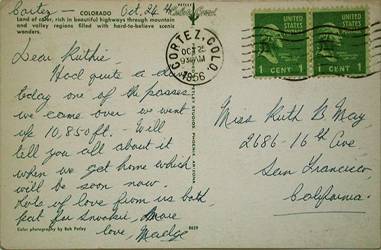 Cortez - COLORADO Oct. 24
Land of color, rich in beautiful highways through mountain
and valley regions filled with hard-to-believe scenic
wonders.
Dear Ruthie:
Had quite a day
today one of the passes
we came over we went
up 10,850 ft. - Will
tell you all about it
when we get home which
will be soon now.
Lots of love from us both
pat for Snookie, more
love, Madge
Color photography by Bob Petley
PETLEY STUDIOS PHOENIX, ARIZONA
CORTEZ, COLO.
OCT 25
1956
UNITED STATES POSTAGE
1 CENT 1
UNITED STATES POSTAGE
1 CENT 1
Miss Ruth B. May
2686-16th Ave
San Francisco,
California.